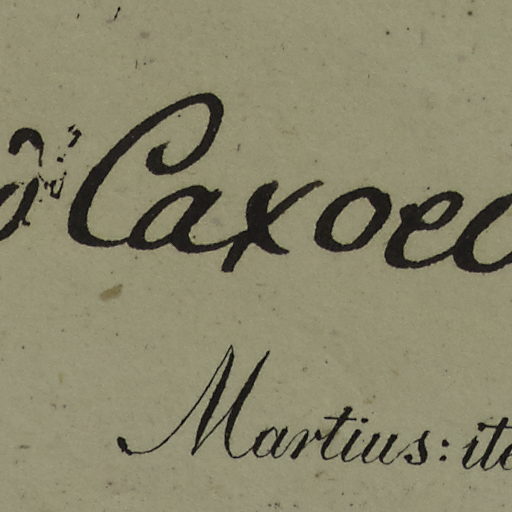 Caxoeo
Martius: ite